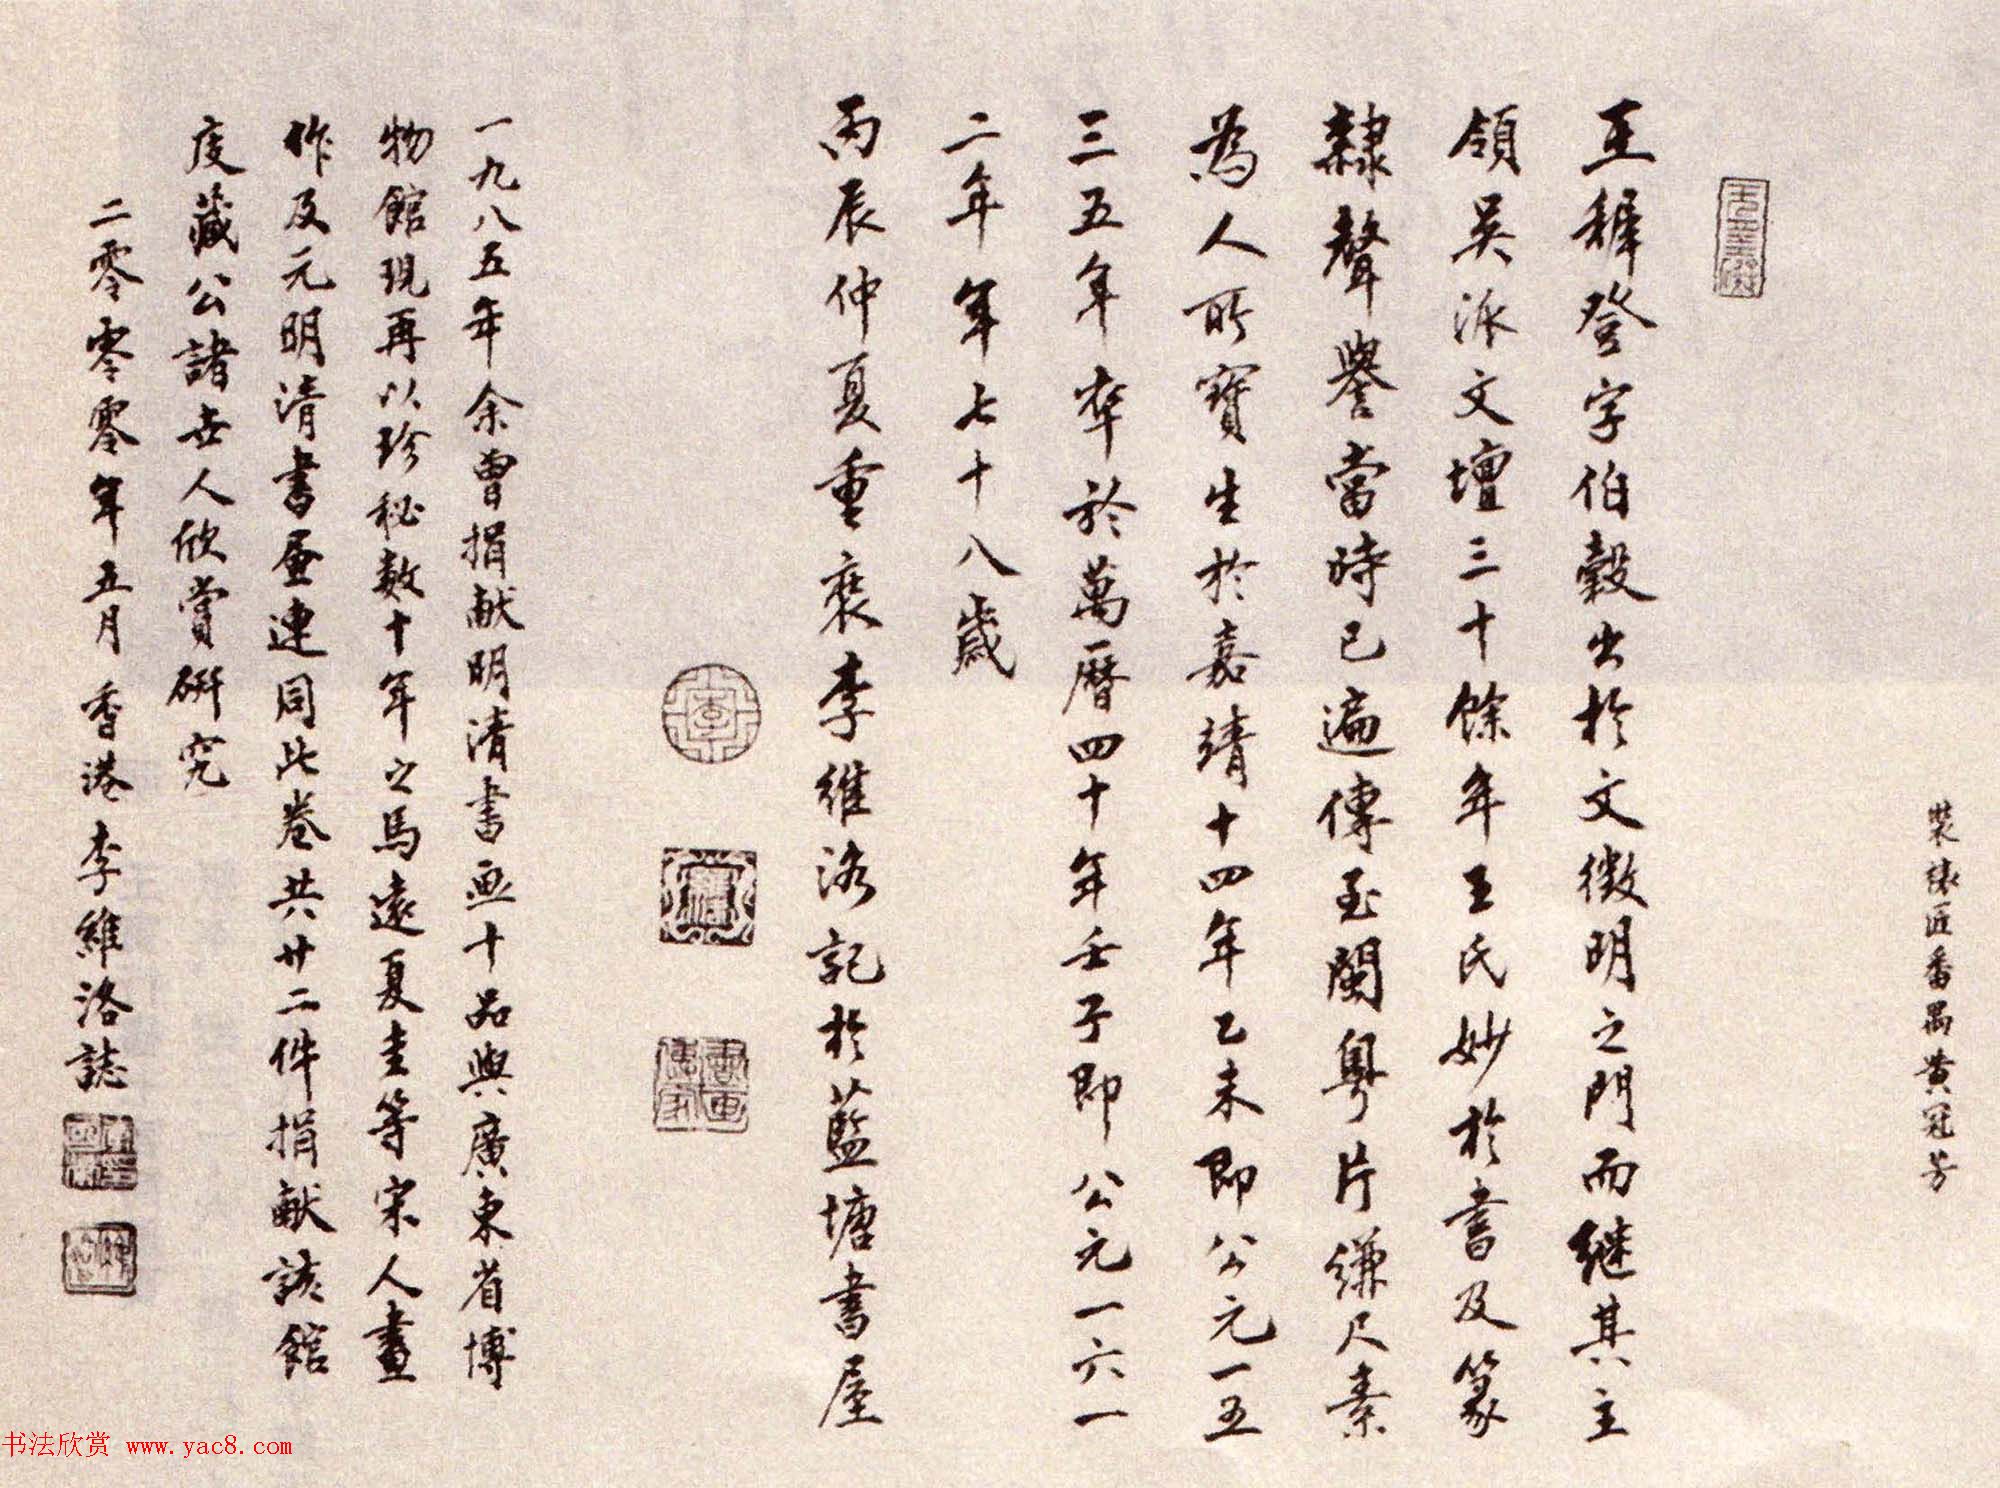 裝裱匠番禺黄冠芳
王穉登字伯穀出於文徵明之門而继其主
領吳派文壇三十餘年王氏妙於書及篆
隸聲譽當時已遍傳至閩粵片縑尺素
為人所寶生於嘉靖十四年乙未即公元一五
三五年卒於萬曆四十年壬子即公元一六一
二年年七十八歲
丙辰仲夏重裝李維洛記於藍塘書屋
一九八五年余曾捐献明清書画十品與廣東省博
物館現再以珍秘数十年之馬遠夏圭等宋人畫
作及元明清書画連同此卷共廿二件捐献該館
庋藏公諸世人欣賞研究
二零零零年五月香港李維洛誌
书法欣赏 www.yac8.com